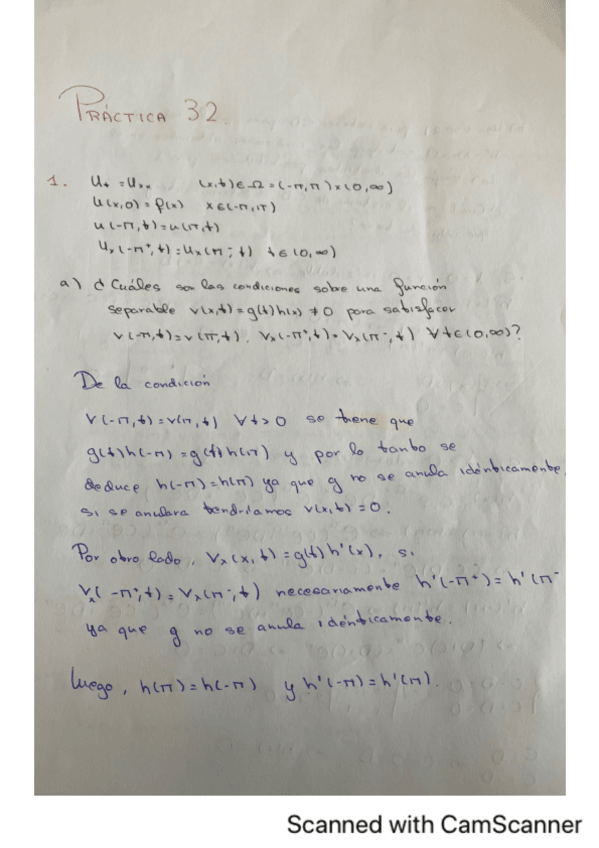 PRÁCTICA 32.
1. U_t = U_xx (x,t) ∈ Ω = (-π,π) x (0,∞)
U(x,0) = f(x) x ∈ (-π,π)
u(-π,t) = u(π,t)
U_x(-π⁺,t) = U_x(π⁻,t) t ∈ (0,∞)
a) ¿Cuáles son las condiciones sobre una función
separable v(x,t) = g(t)h(x) ≠ 0 para satisfacer
v(-π,t) = v(π,t), V_x(-π⁺,t) = V_x(π⁻,t) ∀t ∈ (0,∞)?
De la condición
V(-π,t) = V(π,t) ∀t>0 se tiene que
g(t)h(-π) = g(t)h(π) y por lo tanto se
deduce h(-π) = h(π) ya que g no se anula idénticamente,
si se anulara tendríamos v(x,t) = 0.
Por otro lado, V_x(x,t) = g(t)h'(x), si
V_x(-π⁺,t) = V_x(π⁻,t) necesariamente h'(-π⁺) = h'(π⁻
ya que g no se anula idénticamente.
Luego, h(π) = h(-π) y h'(-π) = h'(π).
Scanned with CamScanner